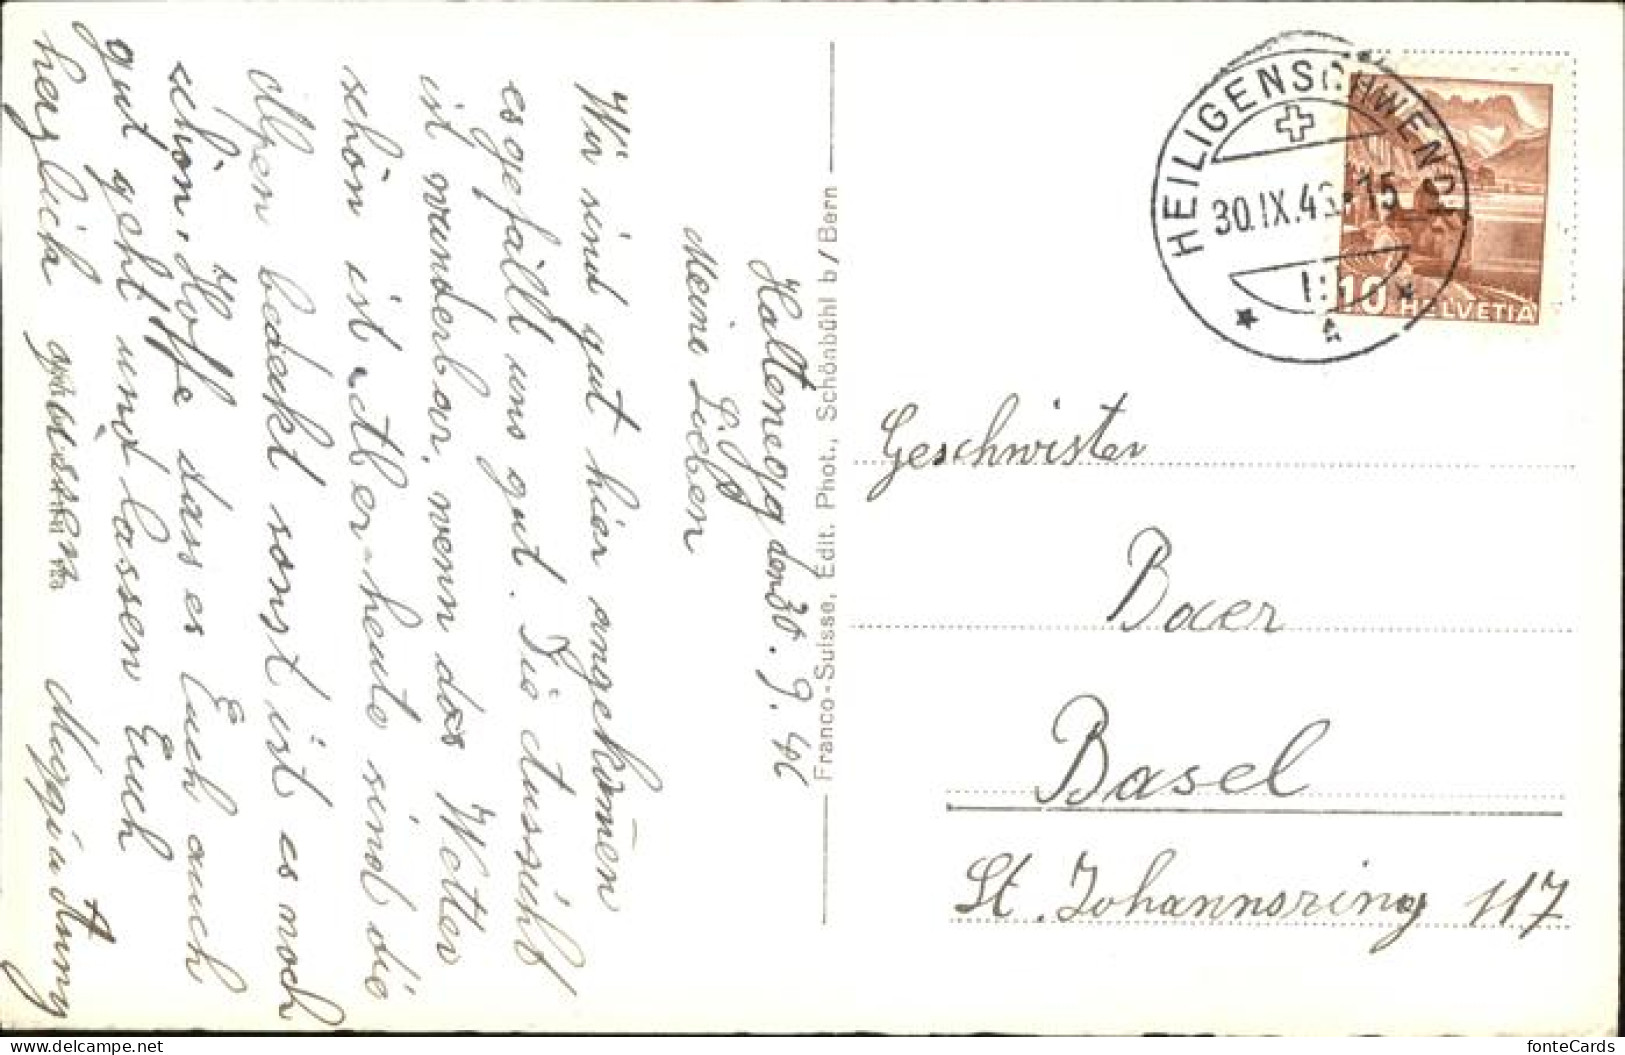 Haltenegg den 30. 9. 46
Meine Lieben
Wir sind gut hier angekom̄en
es gefällt uns gut. Die Aussicht
ist wunderbar, wenn das Wetter
schön ist. Aber heute sind die
Alpen bedeckt sonst ist es noch
schön. Hoffe dass es Euch auch
gut geht und lassen Euch
herzlich grüssen.
Anny
Franco-Suisse, Edit. Phot., Schönbühl b/Bern
HEILIGENSCHWENDI
30.IX.46.-15
10 HELVETIA
Geschwister
Baer
Basel
St. Johannsring 117
fonteCards
© delcampe.net